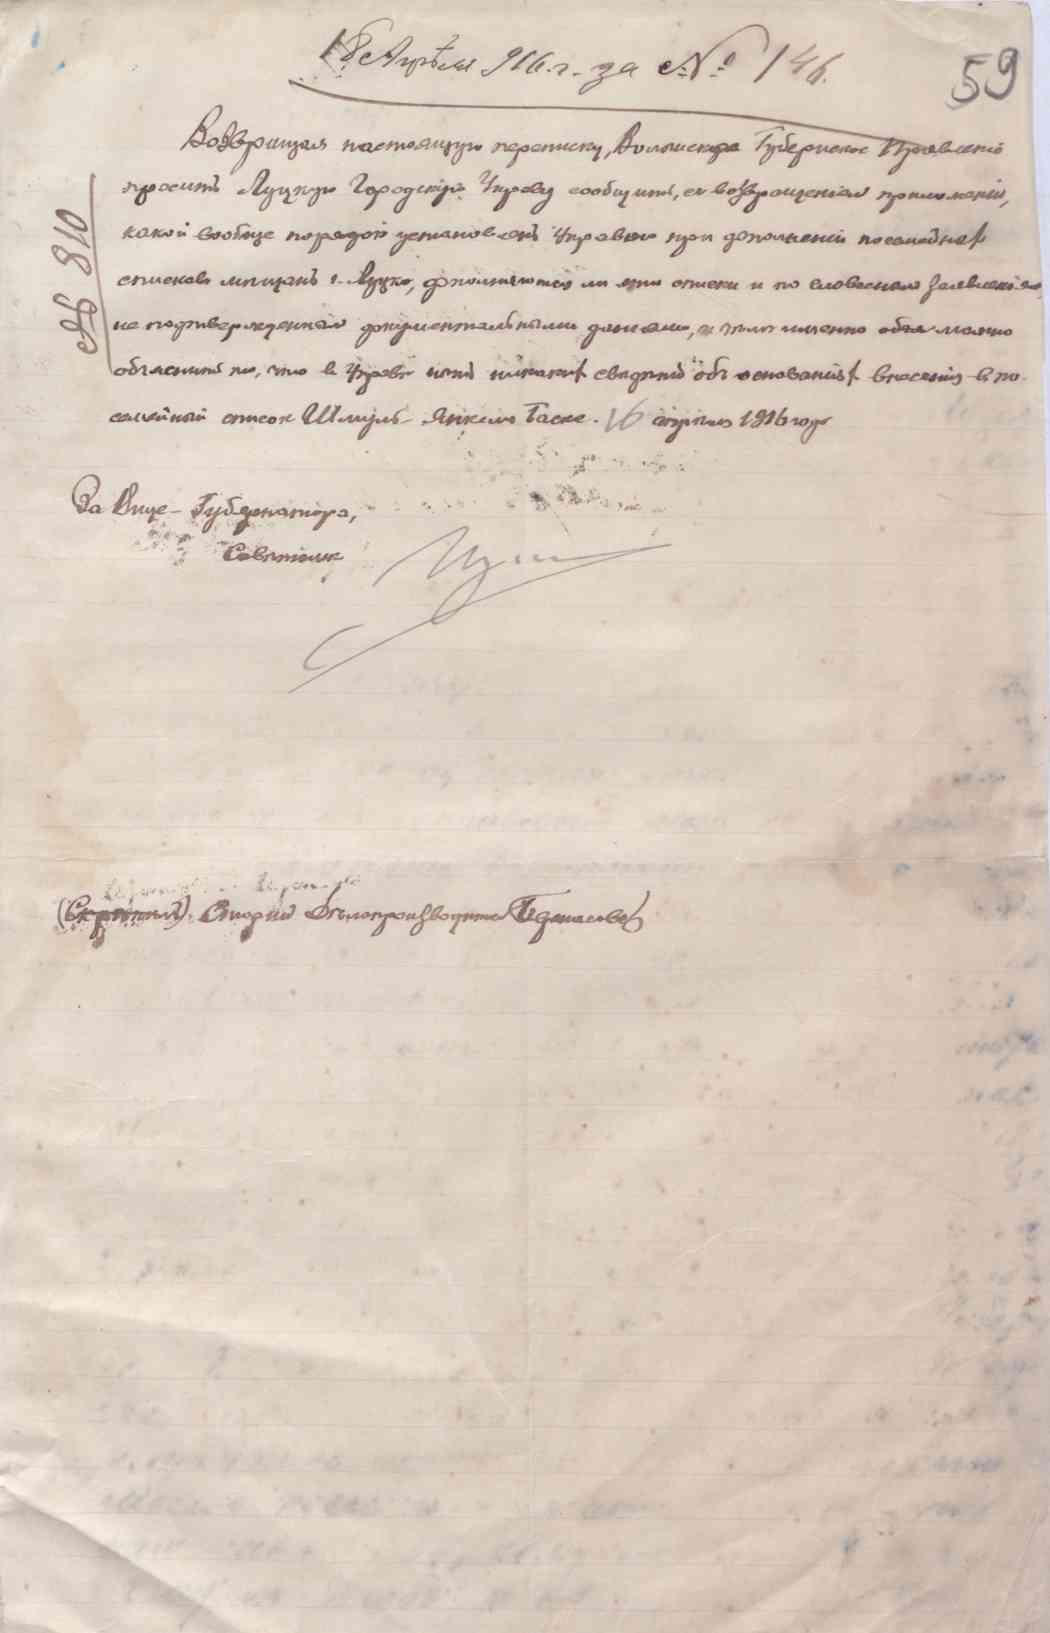 18 Апрѣля 916 г. за № 146.
59
№ 810
Возвращая настоящую переписку, Волынское Губернское Правленіе
проситъ Луцкую Городскую Управу сообщить, съ возвращеніемъ приложеній,
какой вообще порядокъ установленъ Управою при дополненіи посемейныхъ
списковъ мѣщанъ г. Луцка, дополняются ли эти списки и по словеснымъ заявленіямъ,
не подтвержденнымъ документальными данными, и чѣмъ именно можно
объяснить то, что въ Управѣ нѣтъ никакихъ свѣдѣній объ основаніяхъ внесенія въ по-
семейный списокъ Шмуль-Янкеля Гаске. 16 апрѣля 1916 года
За Вице-Губернатора,
Совѣтникъ
(Скрѣпилъ) Старшій Дѣлопроизводитель